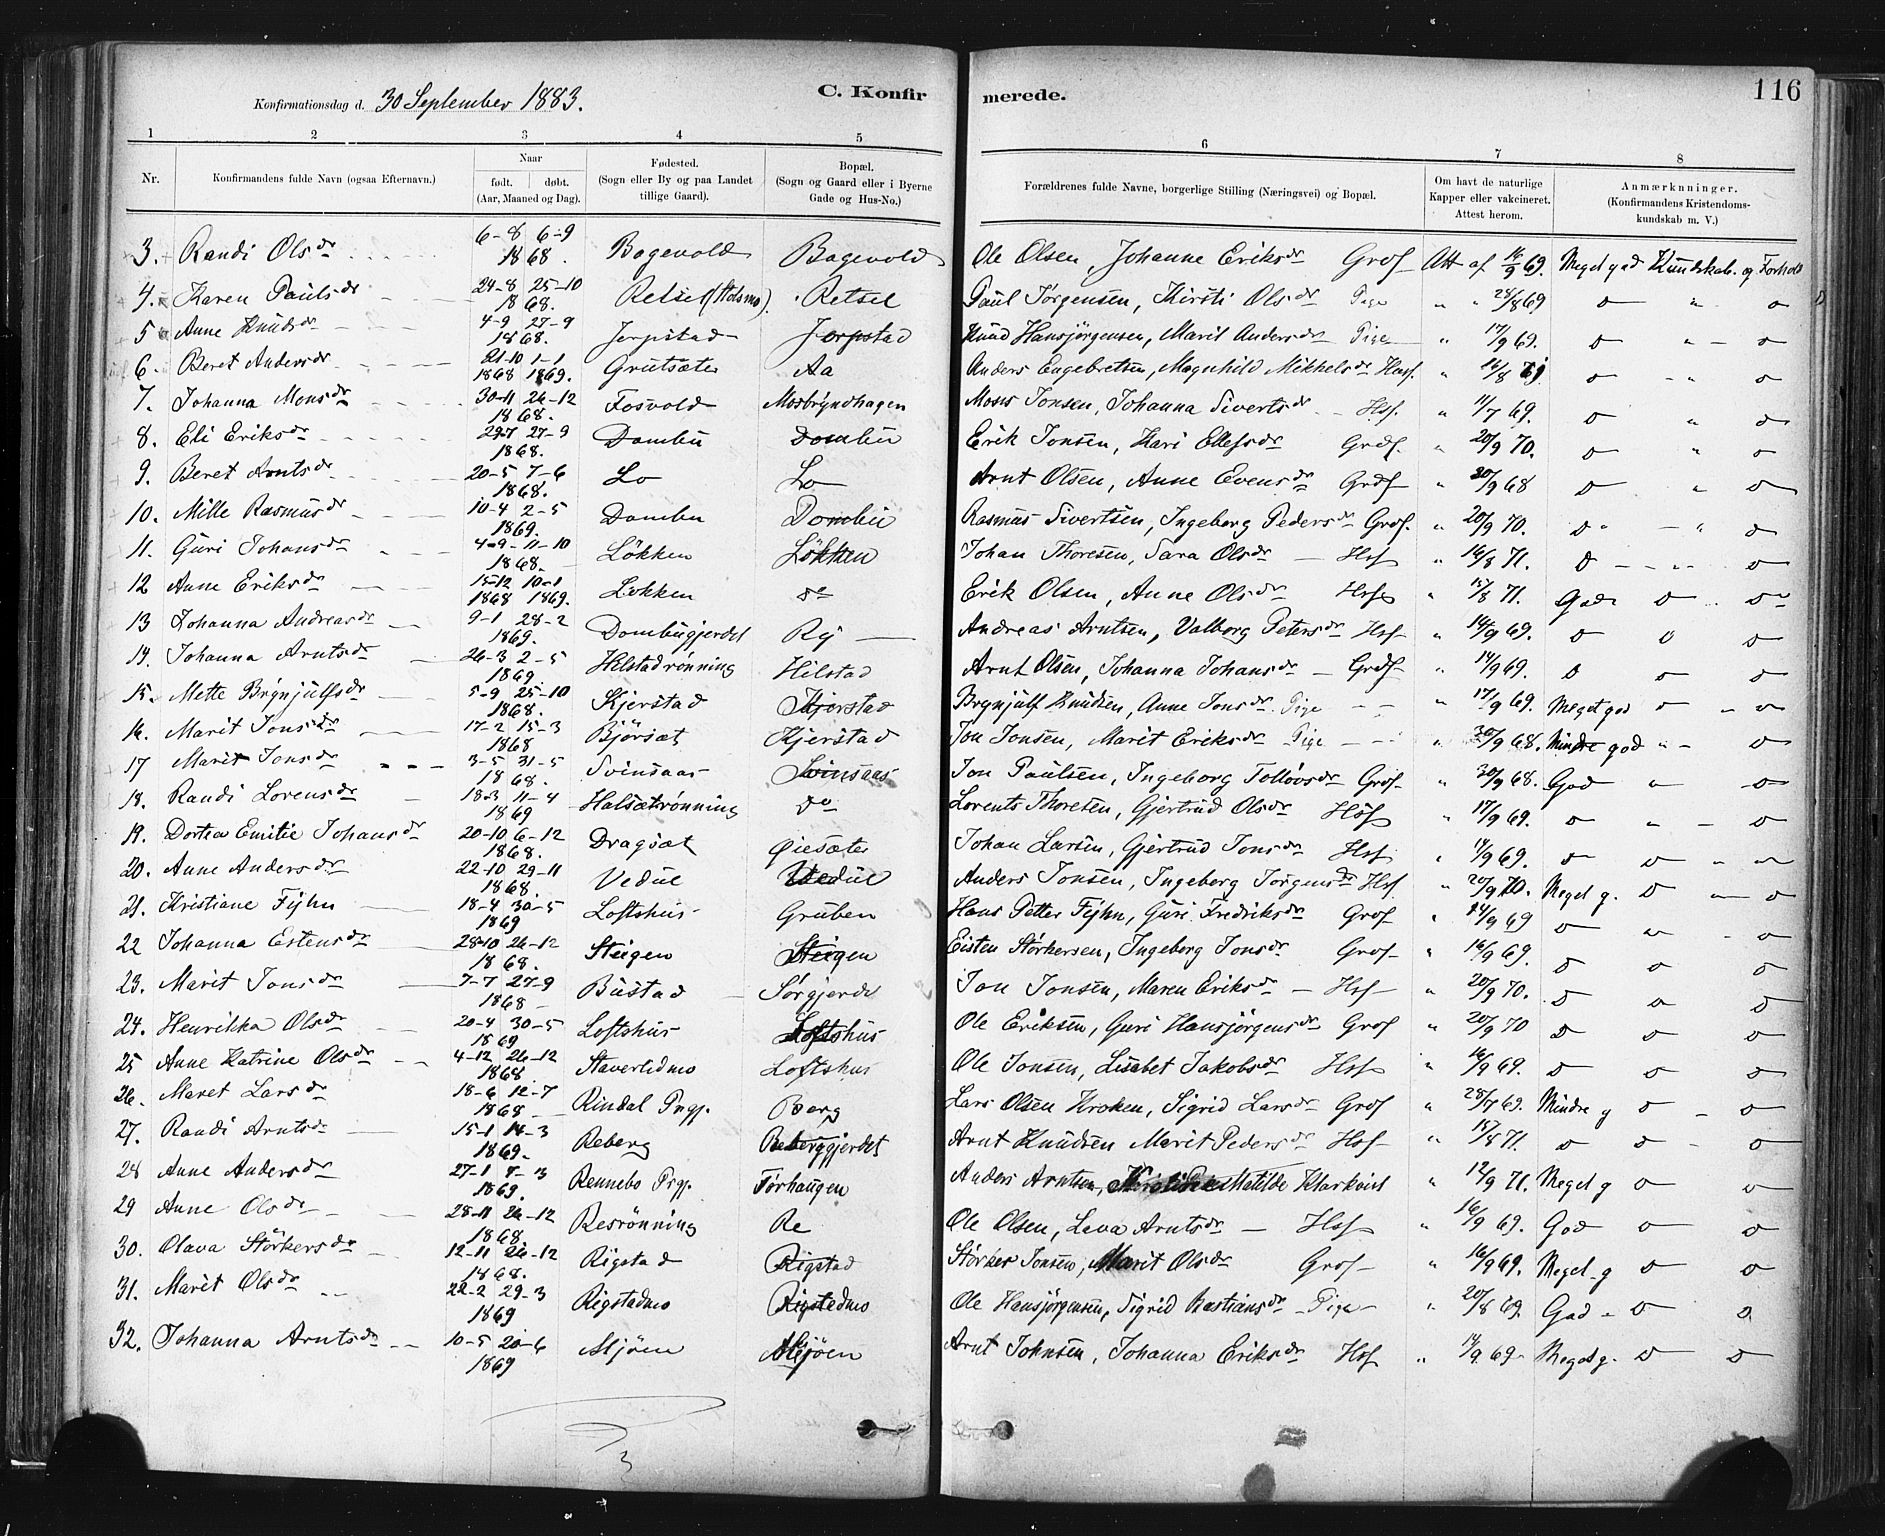 116
Konfirmationsdag d. 30 September 1883. C. Konfirmerede.
1 2 3 4 5 6 7 8
Nr. Konfirmandens fulde Navn (ogsaa Efternavn.) Naar født. døbt. (Aar, Maaned og Dag). Fødested. (Sogn eller By og paa Landet tillige Gaard). Bopæl. (Sogn og Gaard eller i Byerne Gade og Hus-No.) Forældrenes fulde Navne, borgerlige Stilling (Næringsvei) og Bopæl. Om havt de naturlige Kapper eller vakcineret. Attest herom. Anmærkninger. (Konfirmandens Kristendomskundskab m. V.)
3. Randi Olsdr 6-8 6-9 1868. Bagevold Bagevold Ole Olsen, Johanne Eriksdr Grdf Att af 16/9 69. Meget god Kundskab og Forhold
4. Karen Paulsdr 24-8 25-10 1868. Retsel (Holsmo). Retsel Paul Jørgensen, Kirsti Olsdr Pige " " 28/8 69 do " do
5 Anne Knudsdr 4-9 27-9 1868. Jerpstad Jerpstad Knud Hansjørgensen, Marit Andersdr Pige " 17/9 69. do " do
6. Beret Andersdr 21-10 1-1 1868 1869. Grutsæter Aa Anders Engebretsen, Magnhild Mikkelsdr Husf. " 16/8 71 do " do
7. Johanna Monsdr 30-11 26-12 1868. Fosvold Mosbryndhagen Mons Jonsen, Johanna Sivertsdr Hsf. " 11/7 69. do " do
8. Eli Eriksdr 29-7 27-9 1868. Dombu Dombu Erik Jonsen, Kari Ellefsdr Grdf. " 20/9 70. do " do
9. Beret Arntsdr 20-5 7-6 1868. Lo Lo Arnt Olsen, Anne Evensdr Grdf " 30/9 68 do " do
10. Mille Rasmusdr 10-4 2-5 1869. Dombu Dombu Rasmus Sivertsen, Ingeborg Pedersdr Grdf. " 20/9 70. do " do
11. Guri Johansdr 4-9 11-10 1868. Løkken Løkken Johan Thoresen, Sara Olsdr Hsf " 16/8 71. do " do
12 Anne Eriksdr 15-12 10-1 1868 1869. Løkken do Erik Olsen, Anne Olsdr Hsf " 15/8 71. God do do
13 Johanna Andreasdr 9-1 28-2 1869. Dombugjerdet Ry Andreas Arntsen, Valborg Petersdr Hsf " 14/9 69. do do do
14. Johanna Arntsdr 26-3 2-5 1869 Hilstadrønning Hilstad Arnt Olsen, Johanna Johansdr Grdf " 14/9 69. do do do
15. Mette Brynjulfsdr 5-9 25-10 1868. Kjerstad Kjerstad Brynjulf Knudsen, Anne Jonsdr Pige " 17/9 69. Meget god do do
16. Marit Jonsdr 17-2 15-3 1868 Bjørsæt Kjerstad Jon Jonsen, Marit Eriksdr Pige " 30/9 68. Mindre god " do
17 Marit Jonsdr 3-5 31-5 1868. Svinsaas Svinsaas Jon Paulsen, Ingeborg Tolløvsdr Grdf " 30/9 68. God " do
18. Randi Lorensdr 18-3 11-4 1869 Halsætrønning do Lorents Thoresen, Gjertrud Olsdr Hsf " 17/9 69. do " do
19. Dortea Emilie Johansdr 20-10 6-12 1868. Dragsæt Øiesæter Johan Larsen, Gjertrud Jonsdr Hsf " 17/9 69. do do " do
20. Anne Andersdr 22-10 29-11 1868. Vedul Vedul Anders Jonsen, Ingeborg Jørgensdr Hsf " 20/9 70. Meget g. do do
21. Kristiane Fyhn 18-4 30-5 1869 Loftshus Gruben Hans Petter Fyhn, Guri Fredriksdr Grdf " 14/9 69 do do do
22 Johanna Estensdr 28-10 26-12 1868. Steigen Steigen Eisten Størkersen, Ingeborg Jonsdr Grdf " 16/9 69. do do do
23. Marit Jonsdr 7-7 27-9 1868 Bustad Sørgjerdet Jon Jonsen, Maren Eriksdr Hsf " 20/9 70. do do do
24. Henrikka Olsdr 20-4 30-5 1869 Loftshus Loftshus Ole Eriksen, Guri Hansjørgensdr Grdf " 20/9 70 do do do
25 Anne Katrine Olsdr 4-12 26-12 1868 Staverlidmo Loftshus Ole Jonsen, Lisabet Jakobsdr Hsf " 16/9 69. do do do
26. Maret Larsdr 18-6 12-7 1868 Rindal Prgj. Berg Lars Olsen Kroken, Sigrid Larsdr Grdf " 28/7 69. Mindre g do do
27. Randi Arntsdr 15-1 14-3 1869. Reberg Reberggjerdet Arnt Knudsen Marit Pedersdr Hsf " 15/8 71. do do do
28 Anne Andersdr 27-1 7-3 1869. Rennebo Prgj. Forhaugen Anders Arntsen, Matilde Klarkvist " 12/9 71. Meget g do do
29 Anne Olsdr 28-11 26-12 1868. Resrønning Re Ole Olsen, Lava Arntsdr Hsf " 16/9 69. God do do
30. Olava Størkersdr 12-11 26-12 1868. Rigstad Rigstad Størker Jonsen, Marit Olsdr Grdf " 16/9 69. Meget g do do
31. Marit Olsdr 22-2 29-3 1869 Rigstadmo Rigstadmo Ole Hansjørgensen, Sigrid Bastiansdr Pige " 20/8 69. God do do
32. Johanna Arntsdr 10-5 20-6 1869 Mjøen Mjøen Arnt Johnsen, Johanna Eriksdr Hsf " 14/9 69 Meget g. do do